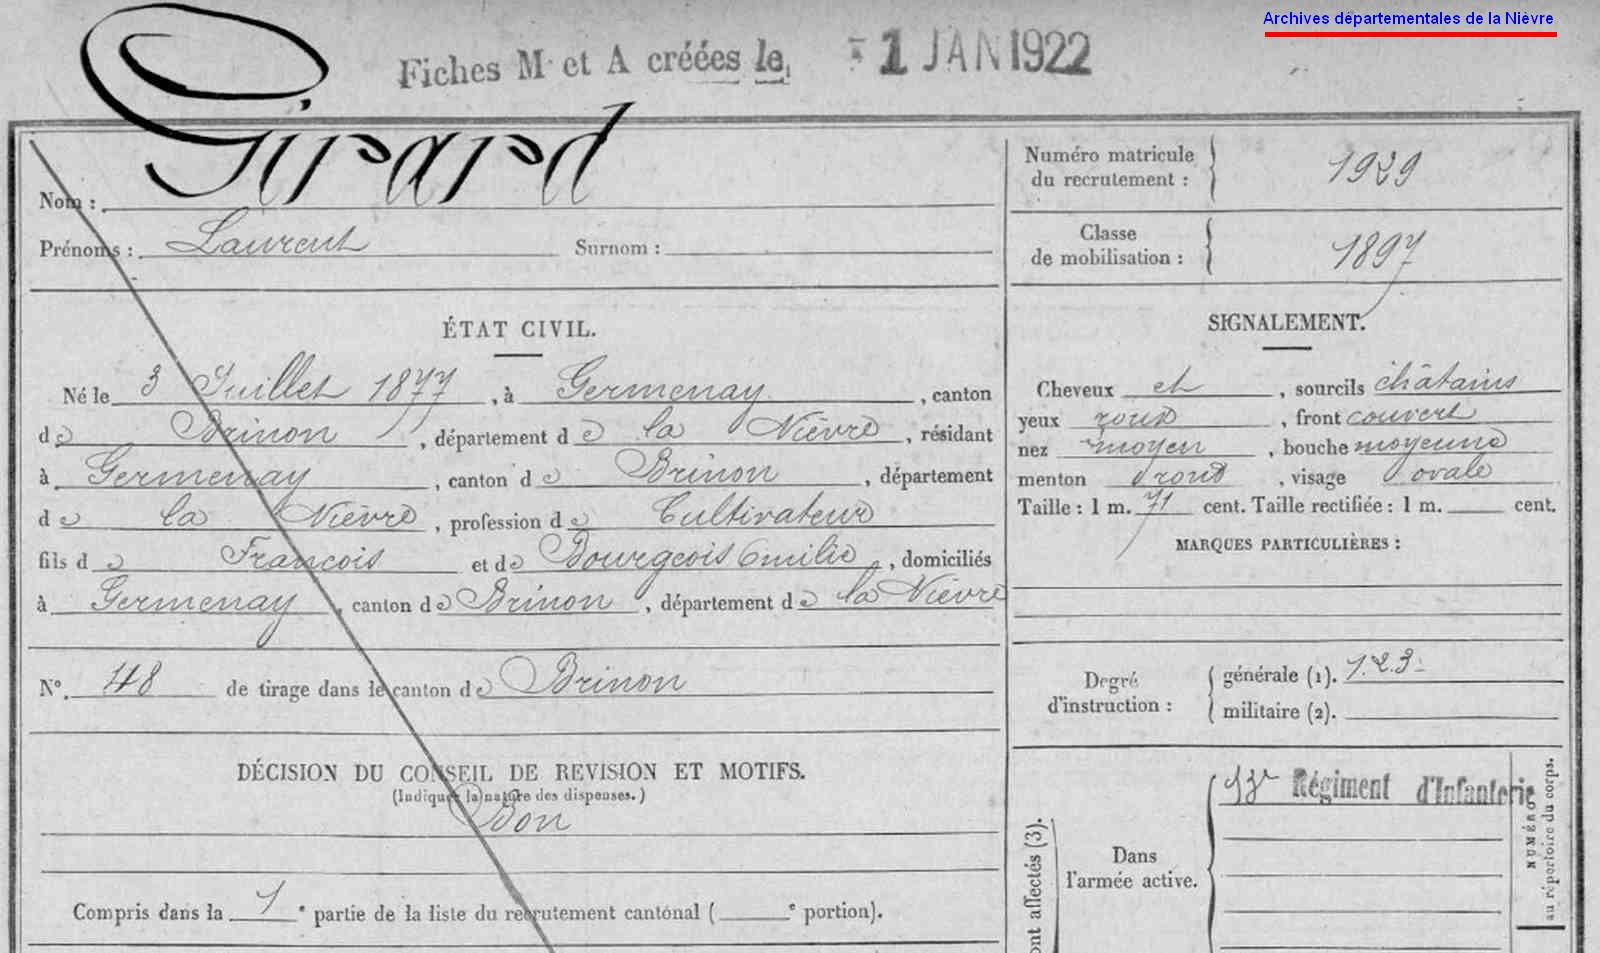 Archives départementales de la Nièvre
Fiches M et A créées le 1 JAN 1922
Nom : Girard
Prénoms : Laurent Surnom :
ÉTAT CIVIL.
Né le 3 Juillet 1877, à Germenay, canton
de Brinon, département de la Nièvre, résidant
à Germenay, canton de Brinon, département
de la Nièvre, profession de Cultivateur
fils de François et de Bourgeois Emilie, domiciliés
à Germenay, canton de Brinon, département de la Nièvre
N°. 48 de tirage dans le canton de Brinon
DÉCISION DU CONSEIL DE REVISION ET MOTIFS.
(Indiquer la nature des dispenses.)
Bon
Compris dans la 1e partie de la liste du recrutement cantonal ( e portion).
Numéro matricule
du recrutement : 1929
Classe
de mobilisation : 1897
SIGNALEMENT.
Cheveux et, sourcils châtains
yeux roux, front couvert
nez moyen, bouche moyenne
menton rond, visage ovale
Taille : 1 m. 71 cent. Taille rectifiée : 1 m. cent.
MARQUES PARTICULIÈRES :
Degré
d'instruction :
générale (1). 1.2.3.
militaire (2).
ont affectés (3).
Dans
l'armée active.
13e Régiment d'Infanterie
NUMÉRO
au répertoire du corps.